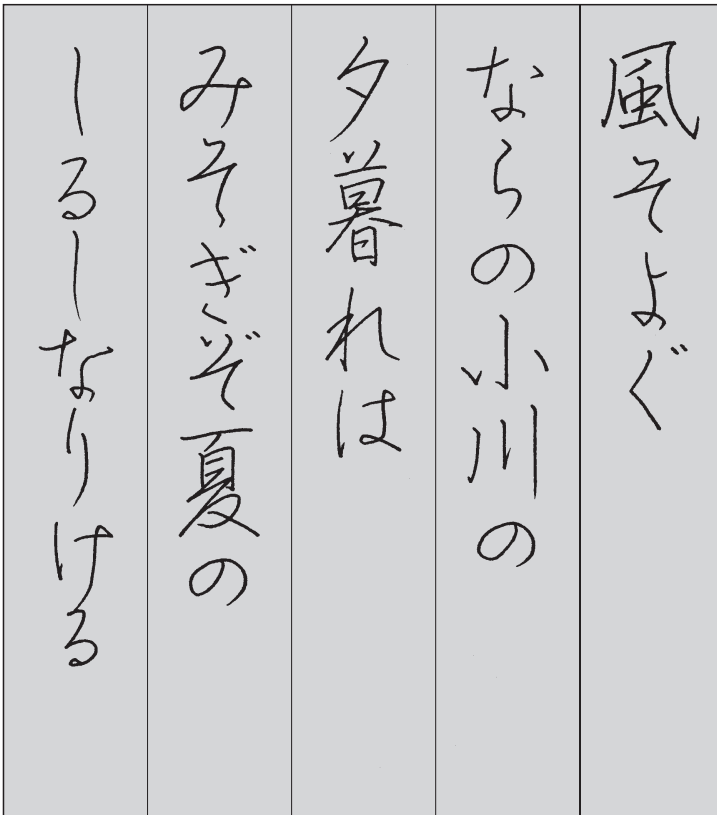 風そよぐ
ならの小川の
夕暮れは
みそぎぞ夏の
しるしなりける